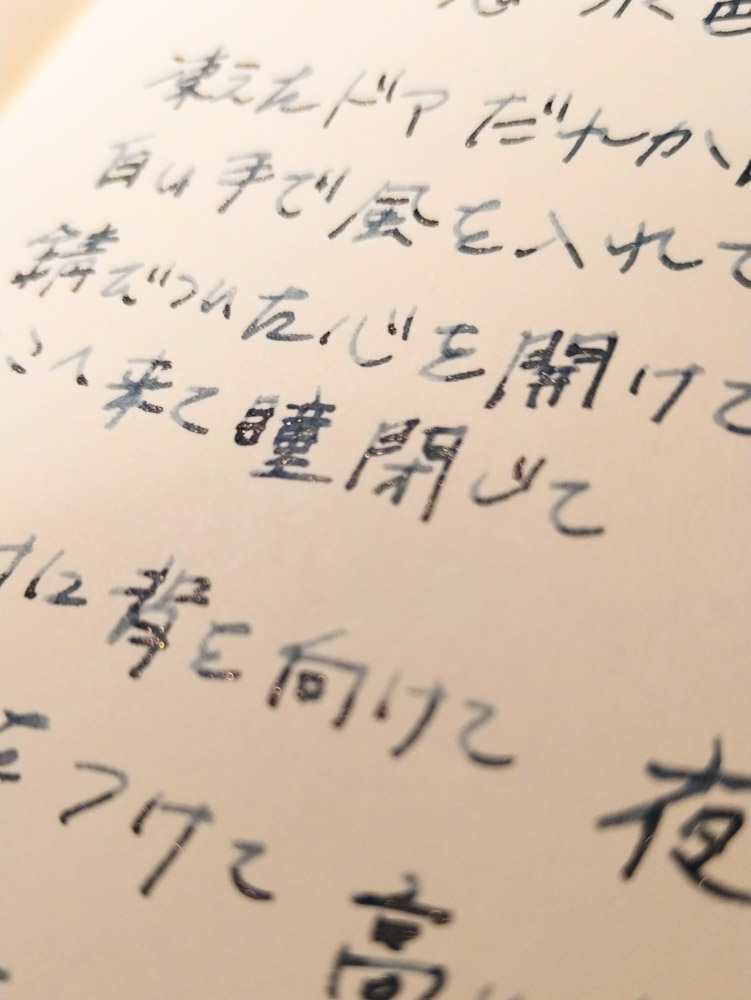 凍えたドア だれか
白い手で風を入れて
錆びついた心を開けて
て来て 瞳閉じて
に背を向けて 夜
をつけて 高